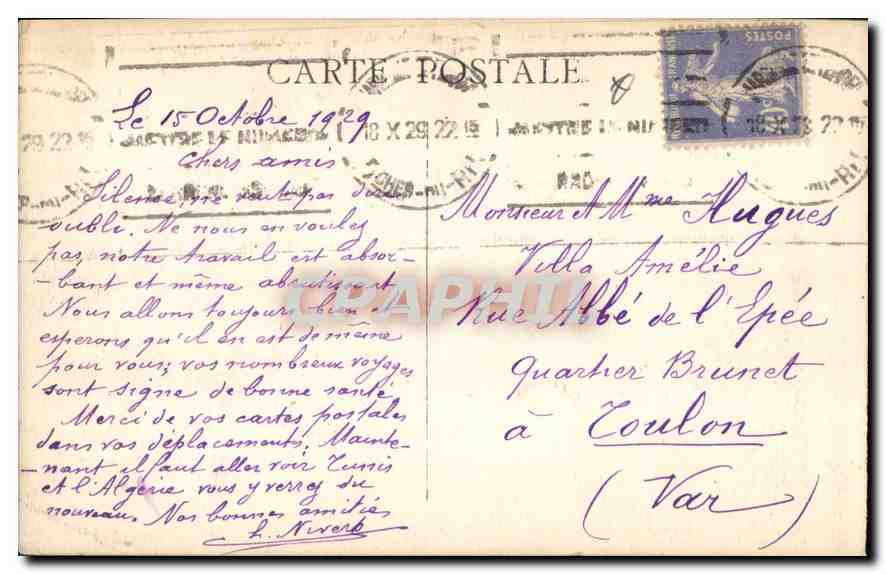 CARTE POSTALE
POSTES
Le 15 Octobre 1929
18 X 29 22 15
Chers amis
Silence ne veut pas dire
oubli. Ne nous en voulez
pas, notre travail est absor-
-bant et même abrutissant
Nous allons toujours bien et
esperons qu'il en est de même
pour vous; vos nombreux voyages
sont signe de bonne santé
Merci de vos cartes postales
dans vos déplacements. Mainte-
-nant il faut aller voir Tunis
et l'Algérie vous y verrez du
nouveau. Nos bonnes amitiés
Monsieur & Mme Hugues
Villa Amélie
Rue Abbé de l'Epée
Quartier Brunet
à Toulon
(Var)
CPAPHIL